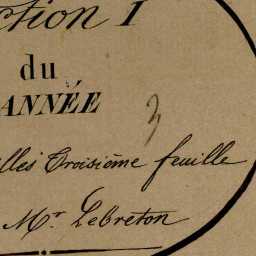 ction I
du
ANNÉE
3
lles Troisième feuille
Mr. Lebreton